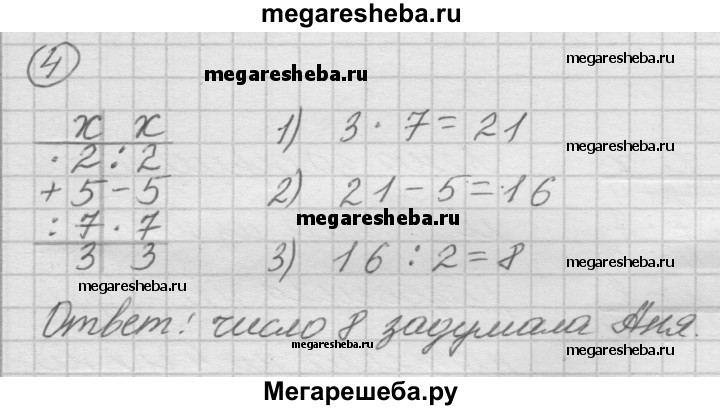 megaresheba.ru
4
megaresheba.ru
megaresheba.ru
х х
· 2 : 2
+ 5 - 5
: 7 · 7
3 3
1) 3 · 7 = 21
megaresheba.ru
2) 21 - 5 = 16
megaresheba.ru
3) 16 : 2 = 8
megaresheba.ru
megaresheba.ru
Ответ: число 8 задумала Аня.
megaresheba.ru
megaresheba.ru
Мегарешеба.ру